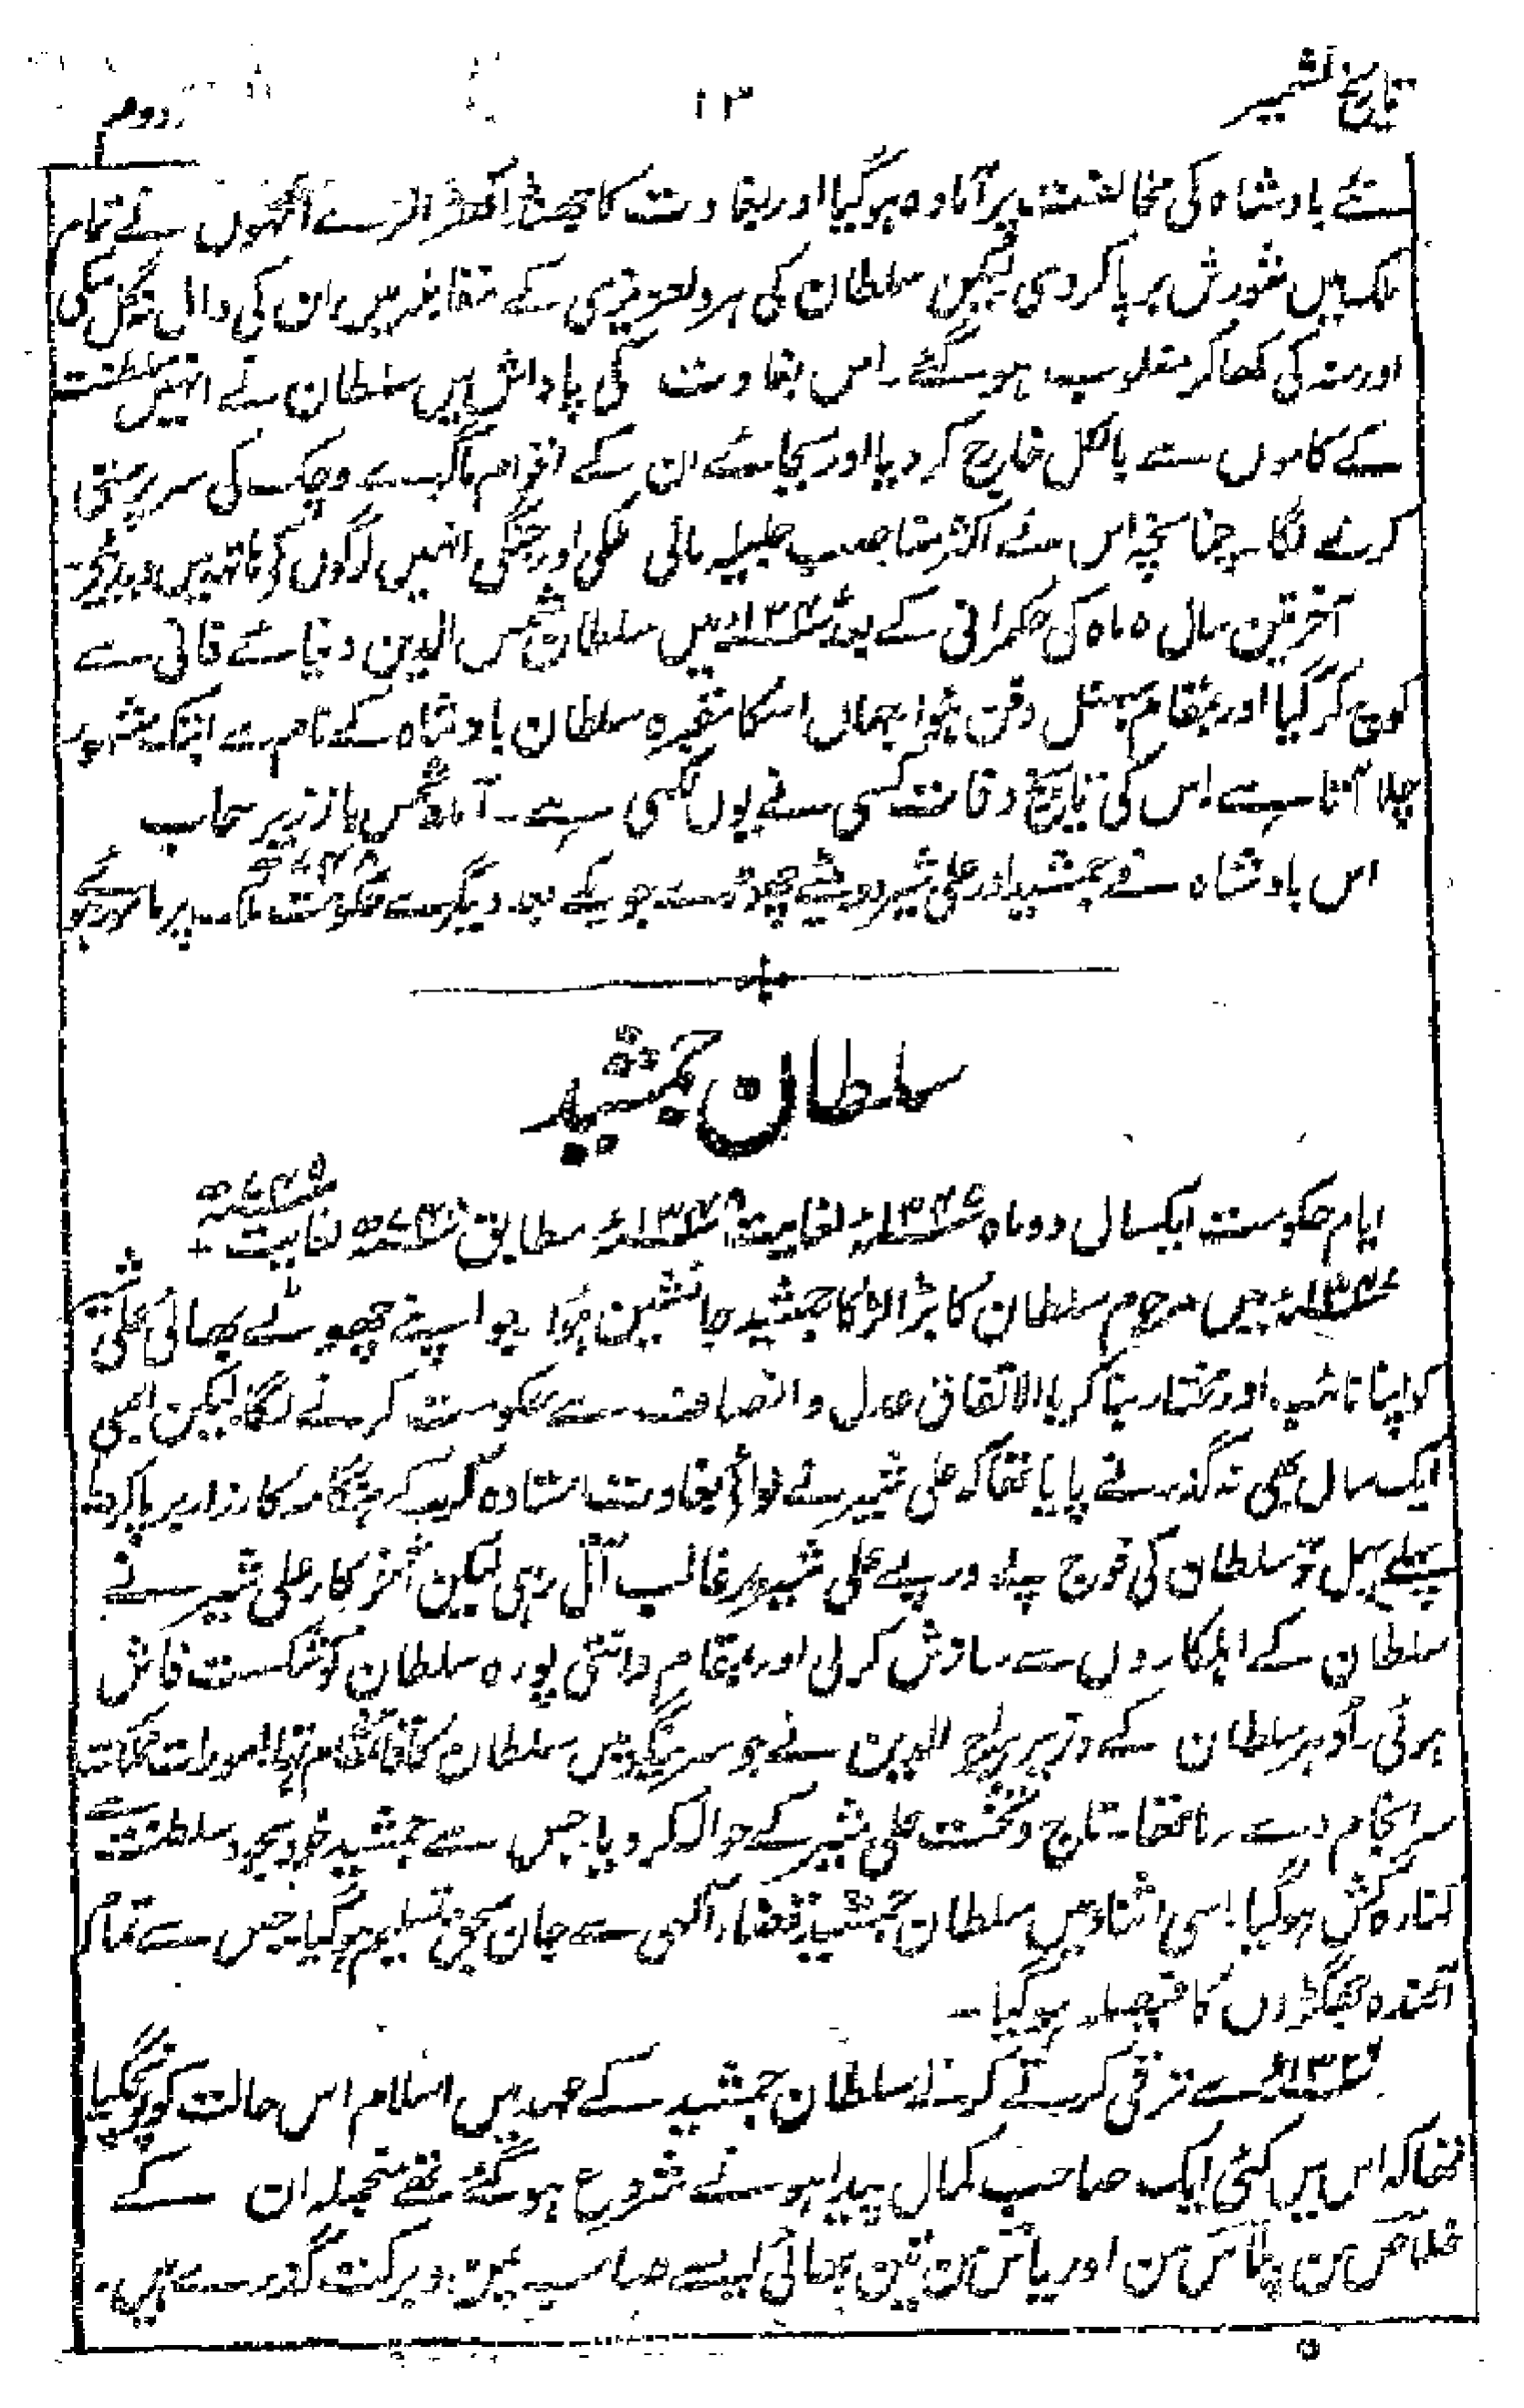 تاریخ کشمیر ۱۳ دوم
نئے بادشاہ کی مخالفت پر آمادہ ہوگیا اور بغاوت کا جھنڈا انہوں نے تمام
ملک میں شورش برپا کردی لیکن سلطان کی ہردلعزیزی کے مقابلہ میں ان کی دال نہ گل سکی
اور منہ کی کھا کر مغلوب ہوگئے۔ اس بغاوت کی پاداش میں سلطان نے انہیں سلطنت
کے کاموں سے بالکل خارج کر دیا اور بجائے ان کے اقوام ماگرے و چک کی سرپرستی
کرنے لگا۔ چنانچہ اس نے اکثر مناصب جلیلہ مالی ملکی اور جنگی انہیں لوگوں کو ہاتھ میں دیدیئے۔
آخر تین سال ۵ ماہ کی حکمرانی کے بعد میں سلطان شمس الدین دنیائے فانی سے
کوچ کر گیا اور بمقام سمبل دفن ہوا جہاں اسکا مقبرہ سلطان بادشاہ کے نام سے ابتک مشہور
چلا آتا ہے۔ اس کی تاریخ وفات کسی نے یوں لکھی ہے۔ آمد شمس باز زیر سحاب
اس بادشاہ نے جمشید اور علی شیر دو بیٹے چھوڑے۔ جو یکے بعد دیگرے حکومت ملک پر مامور ہوئے
سلطان جمشید
ایام حکومت ایکسال دو ماہ ۱۳۴۷ء لغایت ۱۳۴۸ء مطابق ۷۴۸ھ لغایت ۷۴۹ھ
۱۳۴۷ء میں مرحوم سلطان کا بڑا لڑکا جمشید جانشین ہوا۔ جو اپنے چھوٹے بھائی علی شیر
کو اپنا نائب اور مختار بنا کر بالاتفاق عدل و انصاف سے حکومت کرنے لگا۔ لیکن ابھی
ایک سال بھی نہ گذرنے پایا تھا کہ علی شیر نے لوائے بغاوت استادہ کر کے ہنگامہ کارزار برپا کردیا
پہلے پہل تو سلطان کی فوج پے در پے علی شیر پر غالب آتی رہی لیکن آخرکار علی شیر نے
سلطان کے اہلکاروں سے سازش کرلی اور بمقام ونتی پورہ سلطان کو شکست فاش
ہوئی۔ اُدہر سلطان کے وزیر سراج الدین نے جو سرینگر میں سلطان کا قائمقام تھا امورات مملکت
سرانجام دے رہا تھا۔ تاج و تخت علی شیر کے حوالہ کر دیا۔ جس سے جمشید خود بخود سلطنت سے
کنارہ کش ہوگیا۔ اسی اثناء میں سلطان جمشید قضاء الٰہی سے جان بحق تسلیم ہوگیا۔ جس سے تمام
آئندہ جھگڑوں کا فیصلہ ہوگیا۔
سے ترقی کرتے کرتے سلطان جمشید کے عہد میں اسلام اس حالت کو پہنچ گیا
تھا کہ اس میں کئی ایک صاحب کمال پیدا ہونے شروع ہوگئے تھے منجملہ ان کے
خلاص من پلاس من اور یاس من تین بھائی ایسے صاحب یمن و برکت گذرے ہیں۔